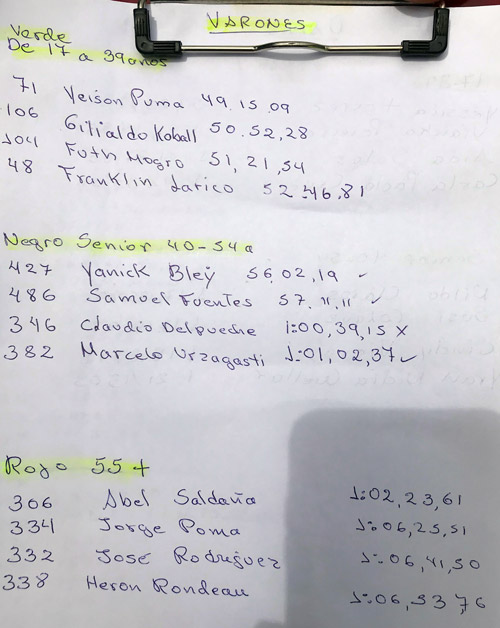 VARONES
Verde
De 17 a 39 años
71 Yeison Puma 49.15.09
106 Gilialdo Koball 50.52,28
104 Foth Mogro 51,21,54
48 Franklin Larico 52.46.81
Negro Senior 40-54a
427 Yanick Bley 56.02,19 ✓
486 Samuel Fuentes 57.11,11 ✓
346 Claudio Delpueche 1:00,39,15 X
382 Marcelo Urzagasti 1:01,02,37 ✓
Rojo 55+
306 Abel Saldaña 1:02,23,61
334 Jorge Poma 1:06,25,51
332 José Rodriguez 1:06,41,50
338 Heron Rondeau 1:06,53,76